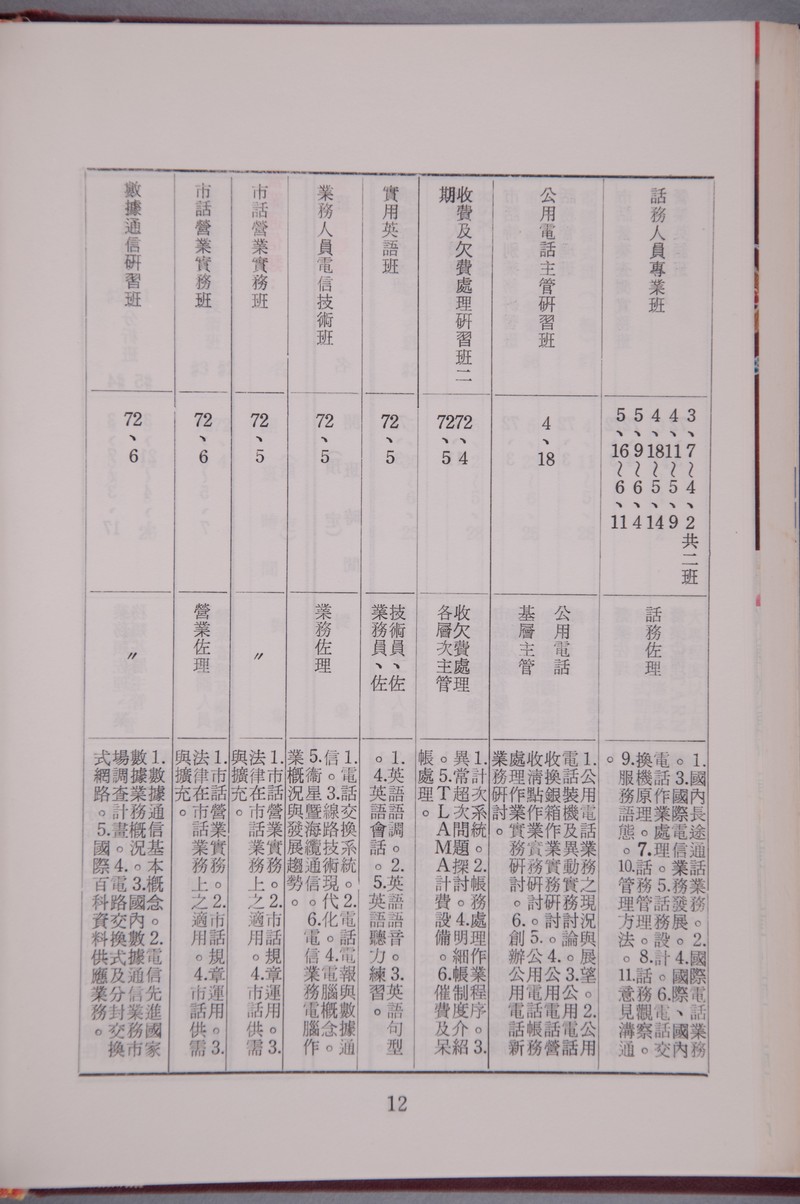 話務人員專業班
3、7~4、2共二班
4、11~5、9
4、18~5、14
5、9~6、4
5、16~6、11
話務佐理
1.國內長途通話業務。2.國際電話業務
。3.國際電信業務發展。4.國際、國內
電話作業處理。5.話務設計。6.電話交
換機原理。7.話務管理。8.話務觀察。
9.服務語態。10.管理方法。11.意見溝通
。
公用電話主管研習班
4、18
公用電話
基層主管
1.公用電話業務之現況與展望。2.公用
電話裝機及異動實務討論。3.公用電話
收換銀箱作業實務研討。4.公用電話營
收清點作業實務研討。5.公用電話帳務
處理作業實務研討。6.創辦公用電話新
業務研討。
收費及欠費處理研習班二
期
72、4
72、5
收欠費處理
各層次主管
1.計次系統。2.帳務處理作業程序。3.
異常超次問題探討。4.明細帳制度介紹
。5.TLAMA計費設備。6.催費及呆
帳處理。
實用英語班
72、5
技術員、佐
業務員、佐
1.英語語調。2.英語語音。3.英語句型
。4.英語會話。5.英語聽力練習。
業務人員電信技術班
72、5
業務佐理
1.電話交換系統。2.電話電報與數據通
信。3.線路技術現代化。4.電腦概念。
5.衛星暨海纜通信。6.電信業務電腦作
業概況與發展趨勢。
市話營業實務班
72、5
〃
1.市話營業實務。2.市話規章運用。3.
法律在市話業務上之適用。4.市話供需
與擴充。
市話營業實務班
72、6
營業佐理
1.市話營業實務。2.市話規章運用。3.
法律在市話業務上之適用。4.市話供需
與擴充。
數據通信研習班
72、6
〃
1.數據通信基本概念。2.電信先進國家
數據業務概況。3.國內數據通信業務市
場調查計畫。4.電路交換式及分封交換
式網路。5.國際百科資料供應業務。
12